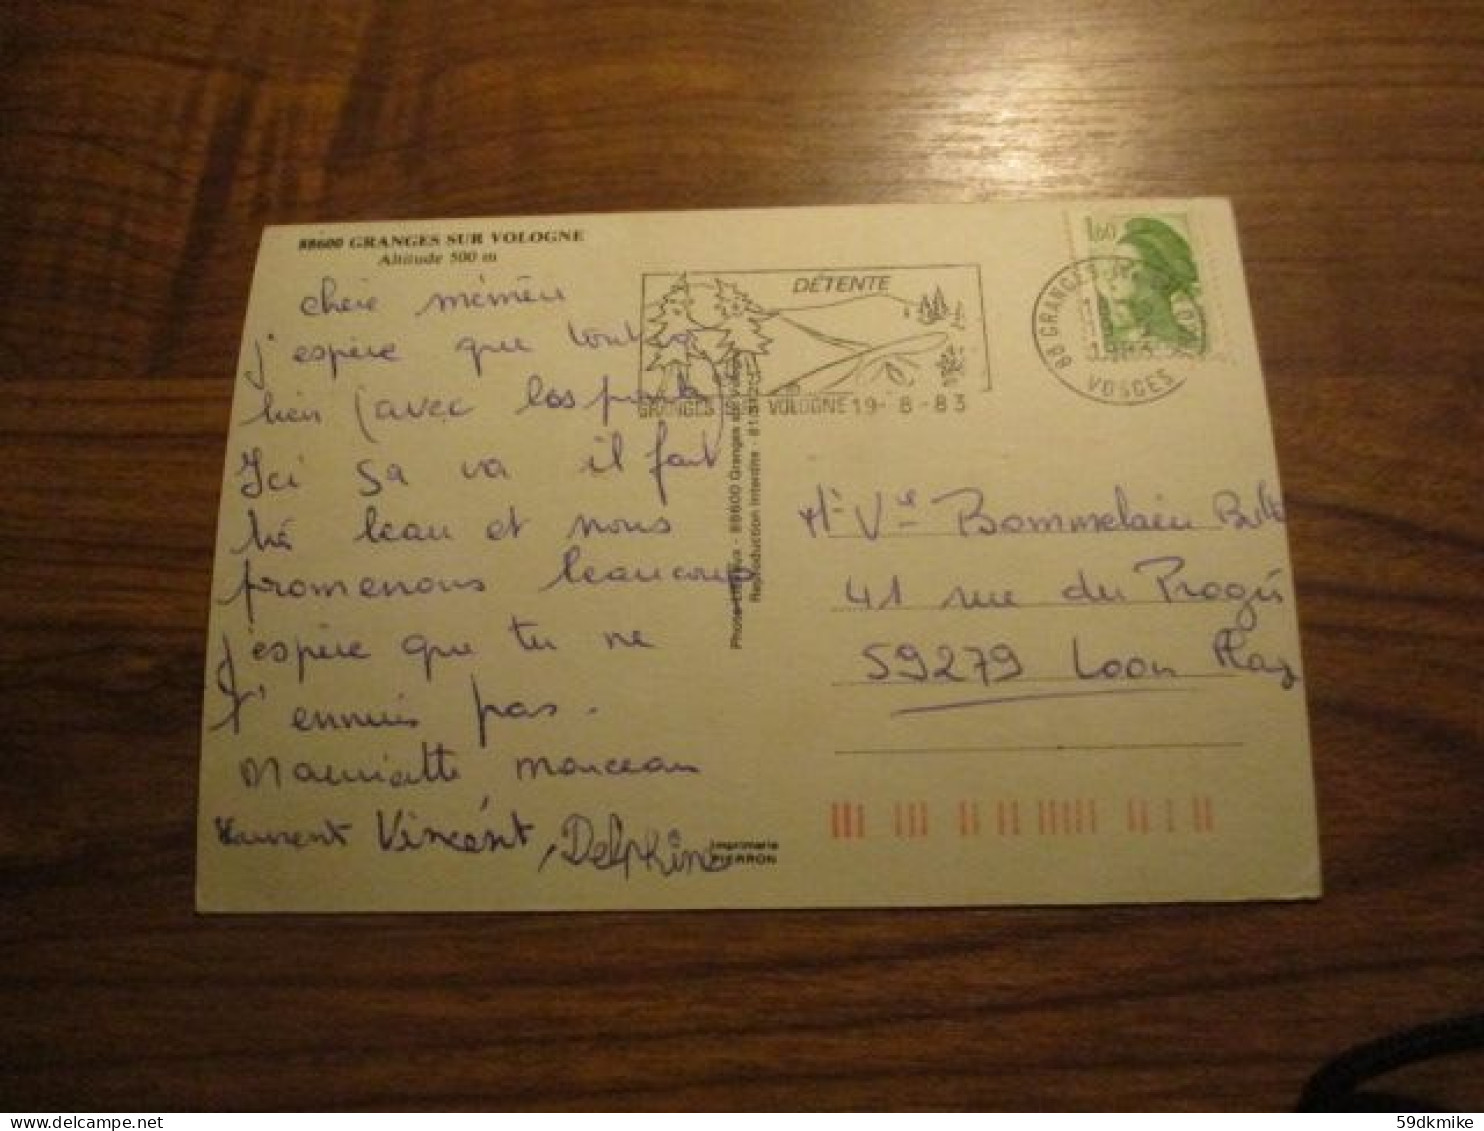 88600 GRANGES SUR VOLOGNE
Altitude 500 m
chere mémère
j'espère que tout va
bien (avec
Ici sa va il fait
trés beau et nous
promenons beaucoup
j'espère que tu ne
t'ennuis pas.
Mauriatte monceau
Laurent Vincent, Delphine
DÉTENTE
GRANGES SUR VOLOGNE 19-8-83
1,60
88 GRANGES-SUR-VOLOGNE
VOSGES
88600 Granges
Reproduction interdite
Imprimerie
PIERRON
Mᵉ Vᵛᵉ Bommelaere
41 rue du Progès
59279 Loon Plage
59dkmike